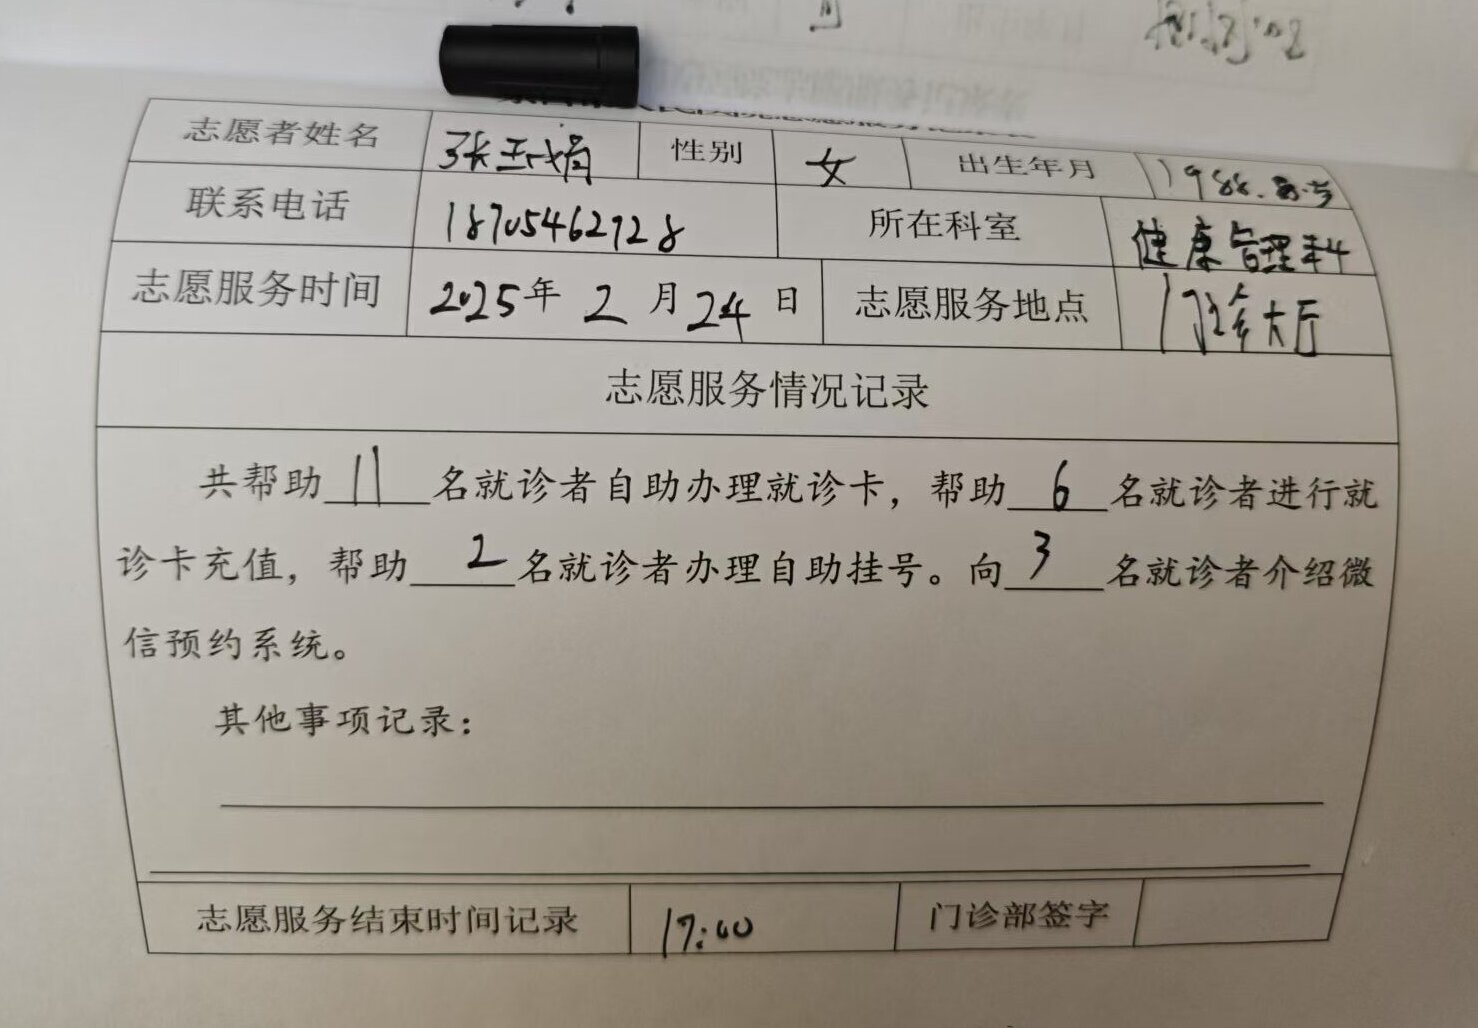 志愿者姓名 性别 女 出生年月
联系电话 18705462928 所在科室 健康管理科
志愿服务时间 2025年 2 月 24 日 志愿服务地点 门诊大厅
志愿服务情况记录
共帮助 11 名就诊者自助办理就诊卡，帮助 6 名就诊者进行就
诊卡充值，帮助 2 名就诊者办理自助挂号。向 3 名就诊者介绍微
信预约系统。
其他事项记录：
志愿服务结束时间记录 17:00 门诊部签字